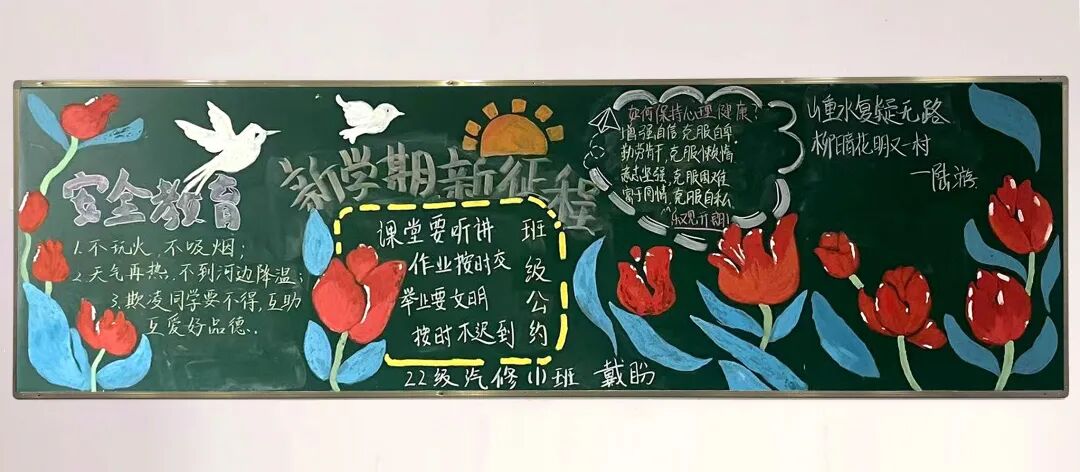 安全教育
1.不玩火、不吸烟;
2.天气再热,不到河边降温;
3.欺凌同学要不得,互助
互爱好品德.
新学期新征程
班级公约
课堂要听讲
作业按时交
举止要文明
按时不迟到
22级汽修(1)班 戴盼
如何保持心理健康?
增强自信 克服自卑
勤劳肯干,克服懒惰
意志坚强,克服困难
富于同情,克服自私
乐观开朗!
山重水复疑无路
柳暗花明又一村
—陆游